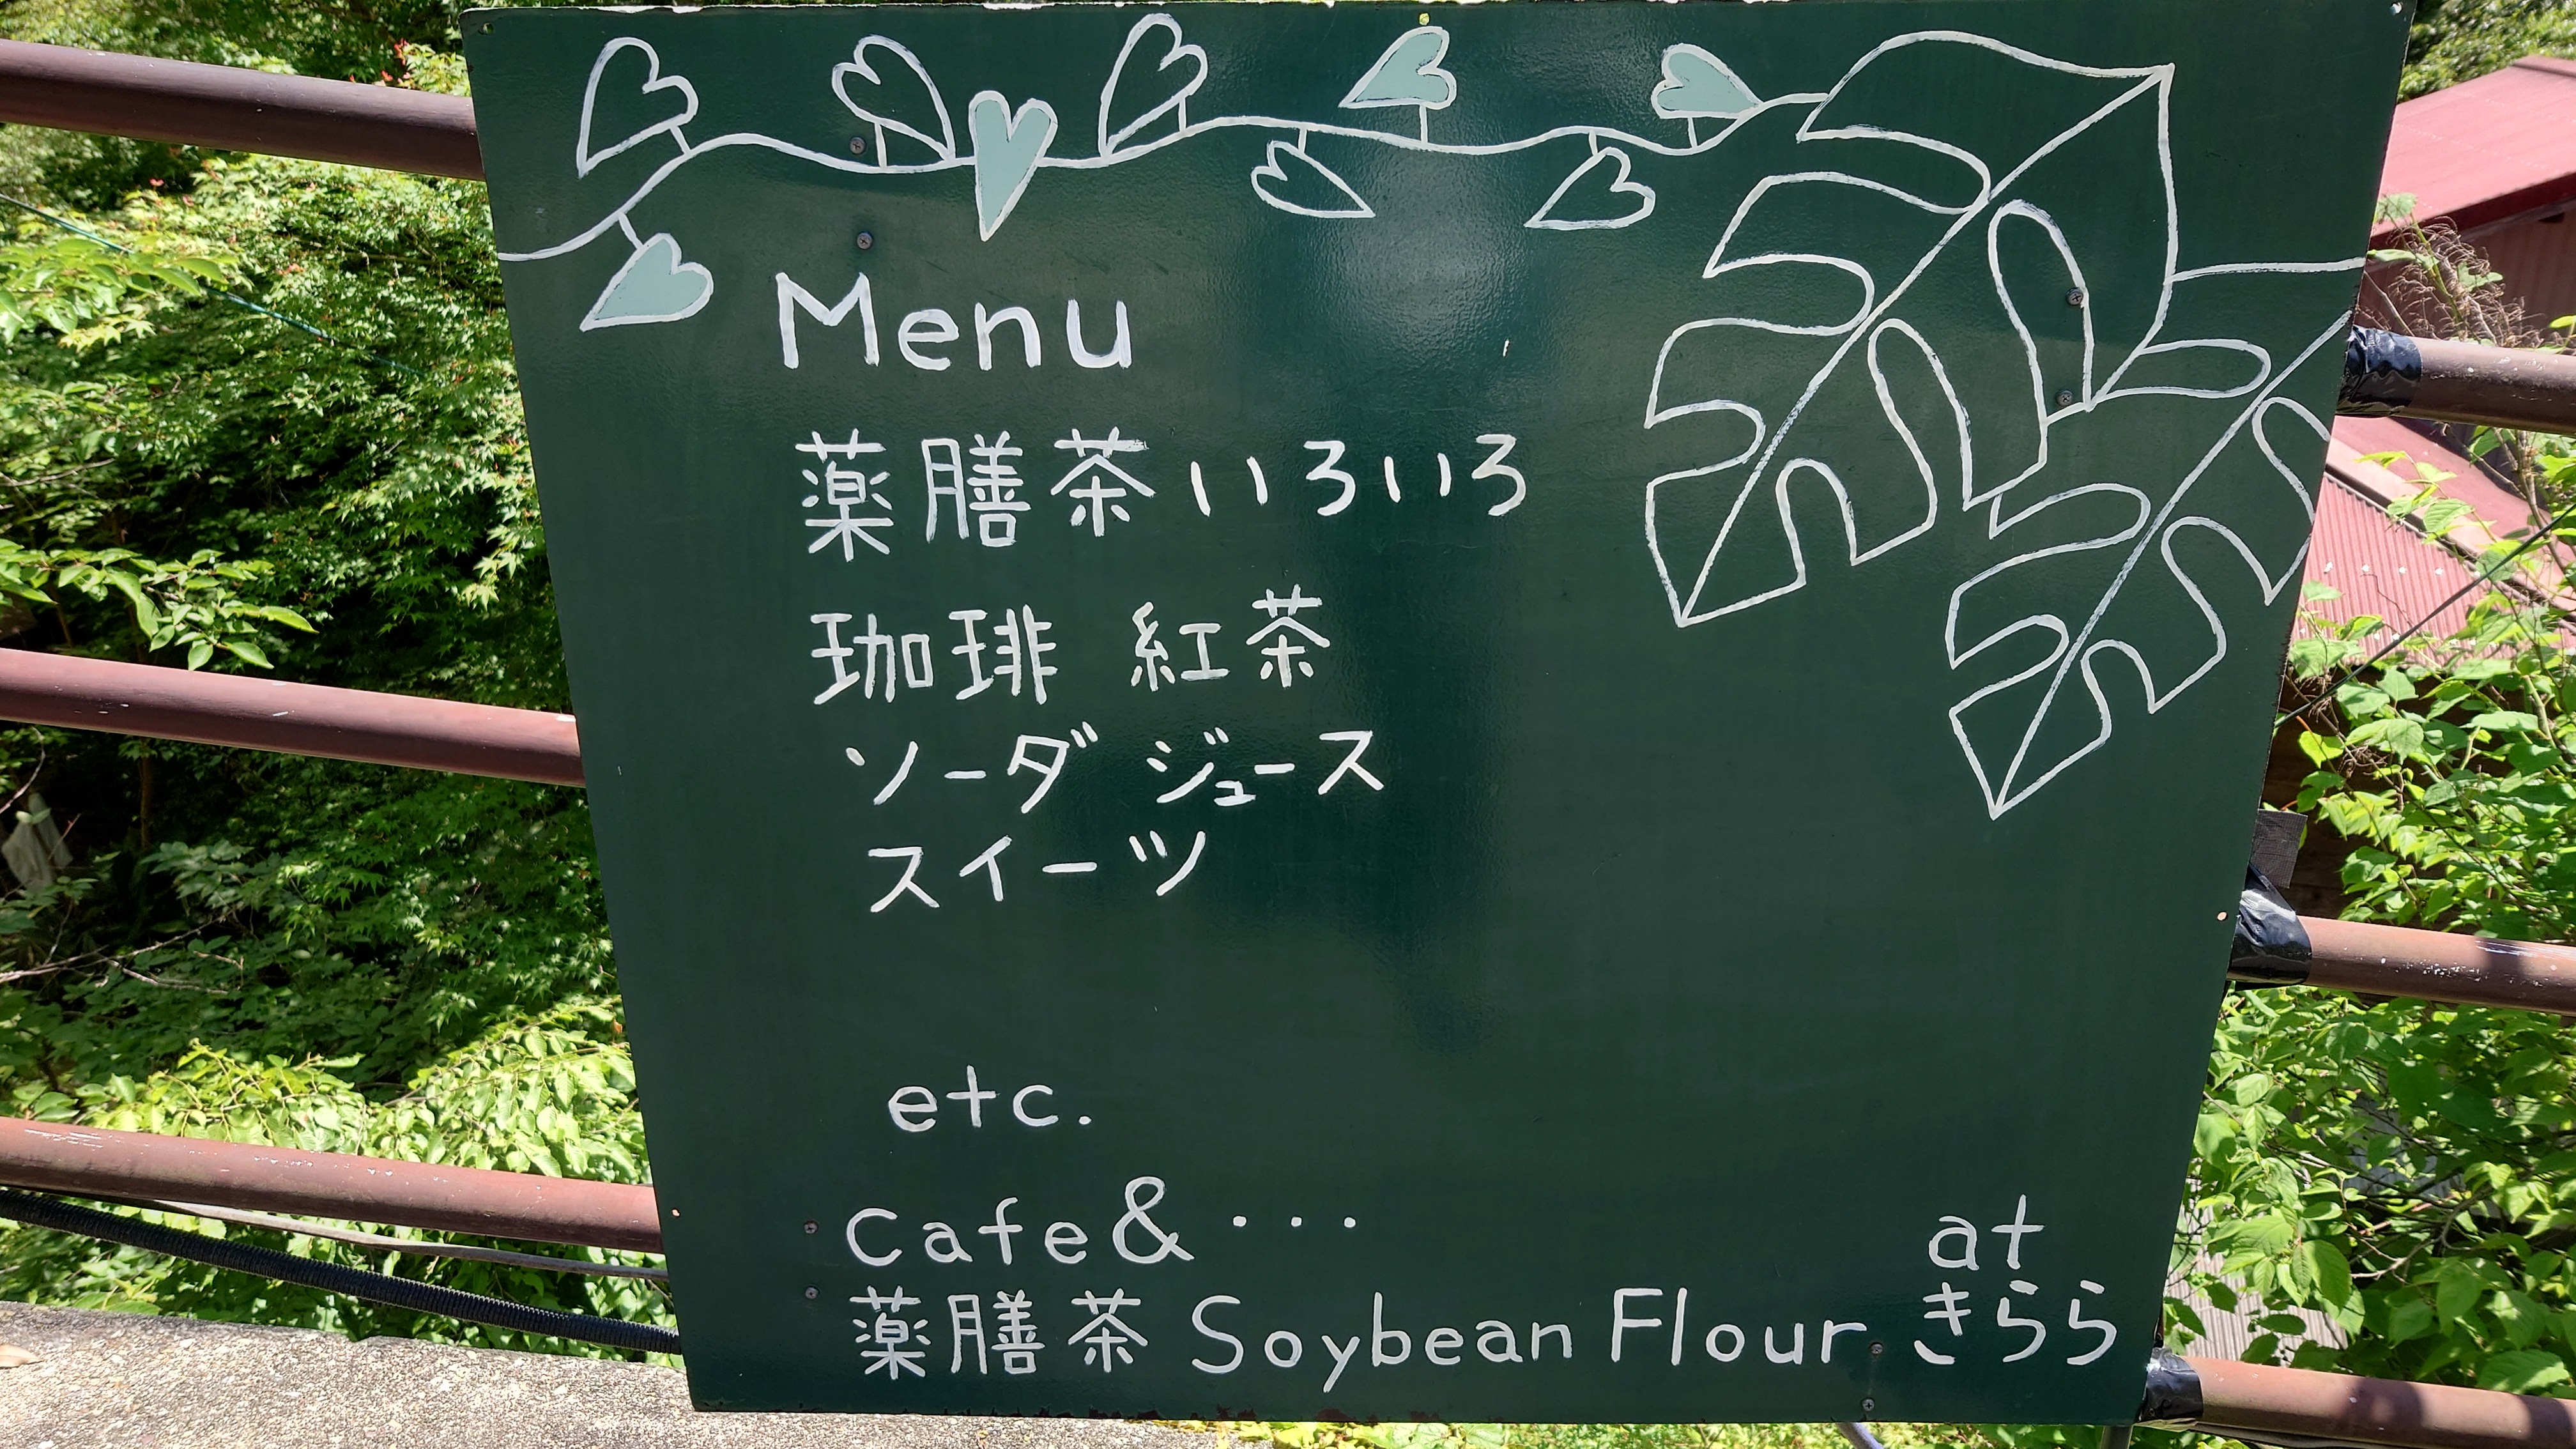 Menu
薬膳茶いろいろ
珈琲 紅茶
ソーダ ジュース
スイーツ
etc.
cafe&・・・
薬膳茶 Soybean Flour
at
きらら